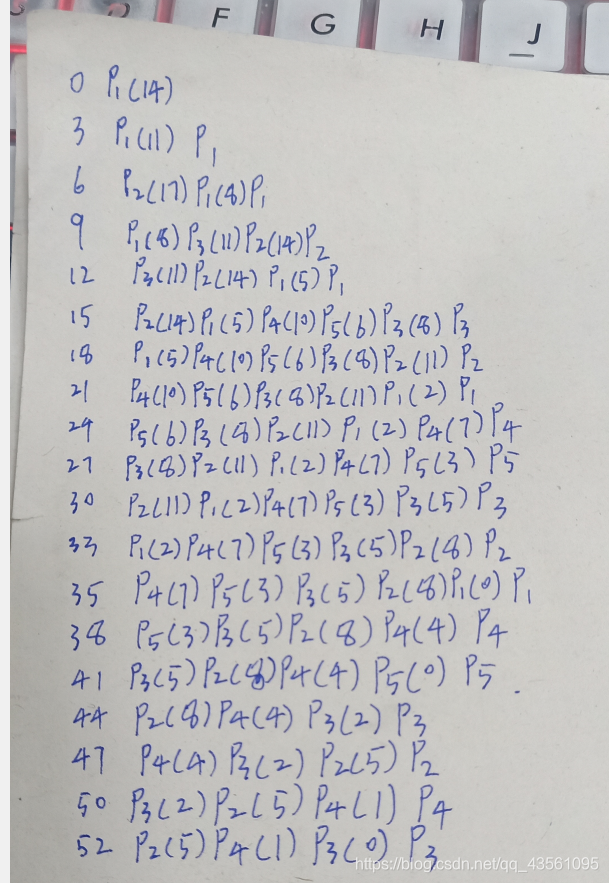 F G H J
0 P₁(14)
3 P₁(11) P₁
6 P₂(17) P₁(8) P₁
9 P₁(8) P₃(11) P₂(14) P₂
12 P₃(11) P₂(14) P₁(5) P₁
15 P₂(14) P₁(5) P₄(10) P₅(6) P₃(8) P₃
18 P₁(5) P₄(10) P₅(6) P₃(8) P₂(11) P₂
21 P₄(10) P₅(6) P₃(8) P₂(11) P₁(2) P₁
24 P₅(6) P₃(8) P₂(11) P₁(2) P₄(7) P₄
27 P₃(8) P₂(11) P₁(2) P₄(7) P₅(3) P₅
30 P₂(11) P₁(2) P₄(7) P₅(3) P₃(5) P₃
33 P₁(2) P₄(7) P₅(3) P₃(5) P₂(8) P₂
35 P₄(7) P₅(3) P₃(5) P₂(8) P₁(0) P₁
38 P₅(3) P₃(5) P₂(8) P₄(4) P₄
41 P₃(5) P₂(8) P₄(4) P₅(0) P₅.
44 P₂(8) P₄(4) P₃(2) P₃
47 P₄(4) P₃(2) P₂(5) P₂
50 P₃(2) P₂(5) P₄(1) P₄
52 P₂(5) P₄(1) P₃(0) P₃
https://blog.csdn.net/qq_43561095